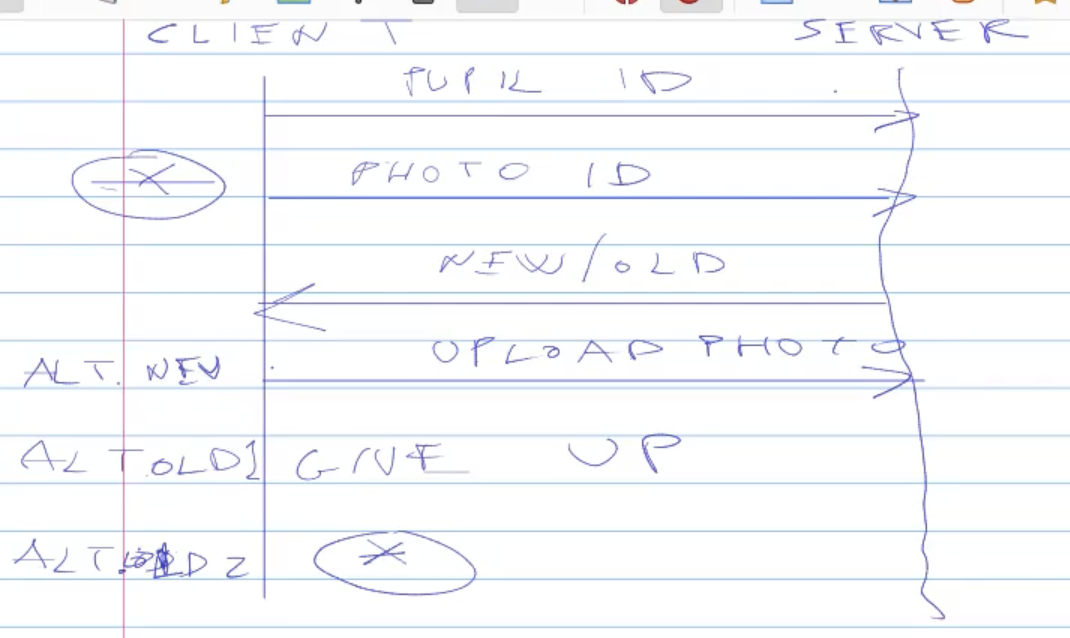 CLIENT SERVER
PUPIL ID
* PHOTO ID
NEW/OLD
ALT. NEW UPLOAD PHOTO
ALT OLD1 GIVE UP
ALT. OLD 2 *